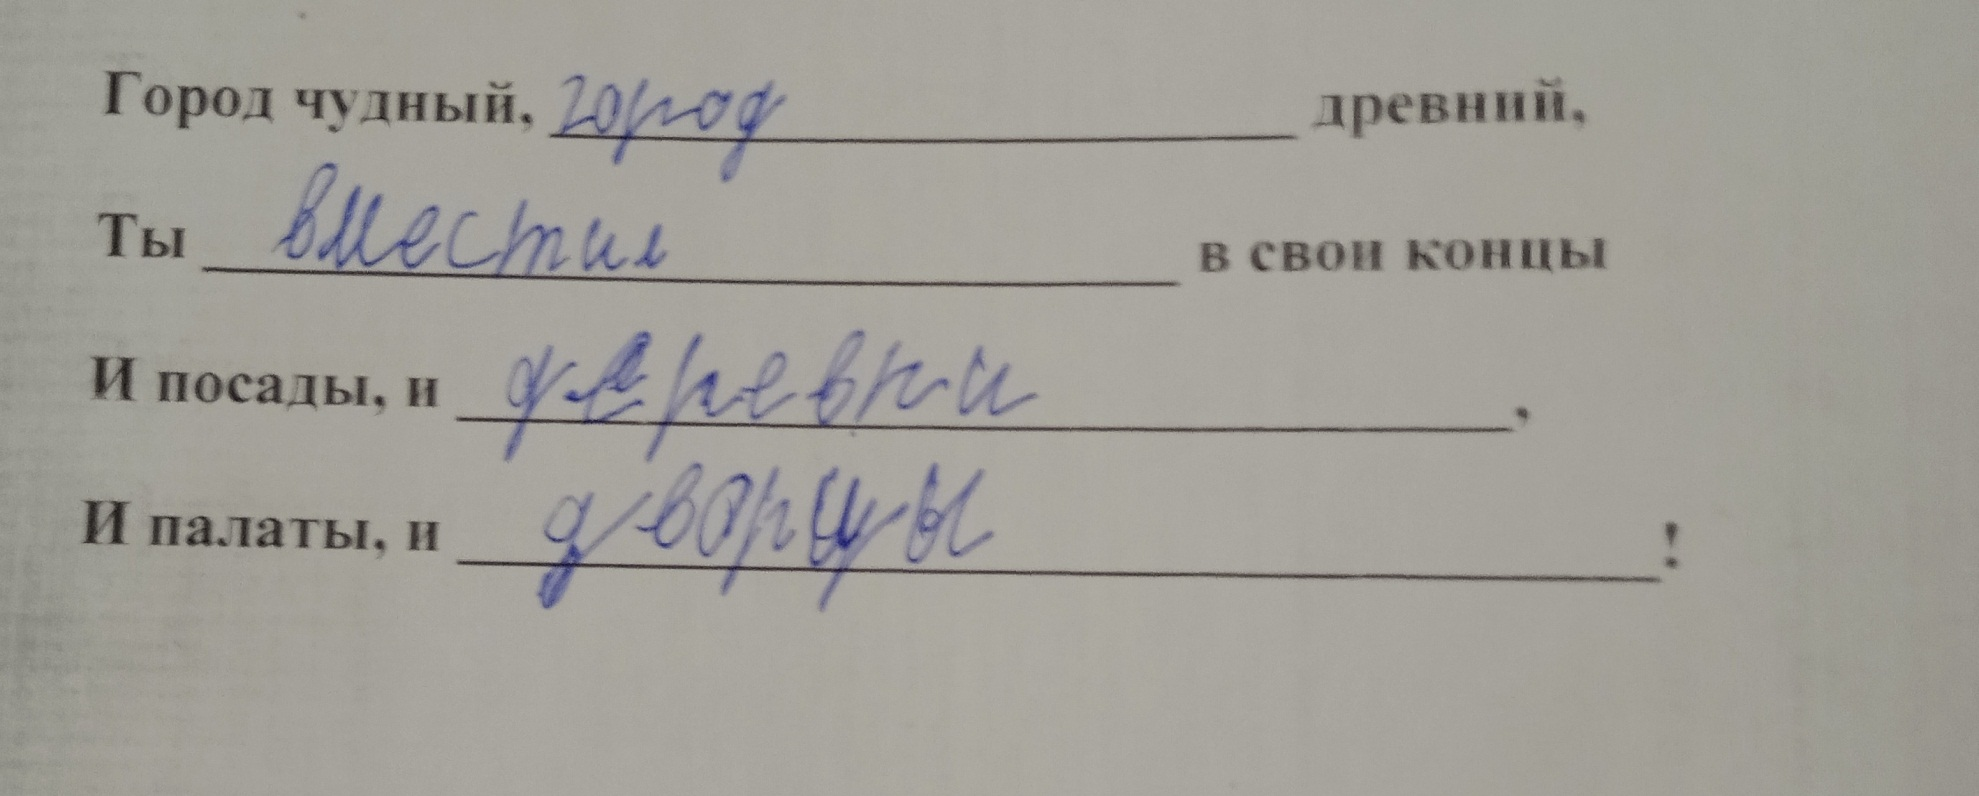 Город чудный, город древний,
Ты вместил в свои концы
И посады, и деревни,
И палаты, и дворцы!